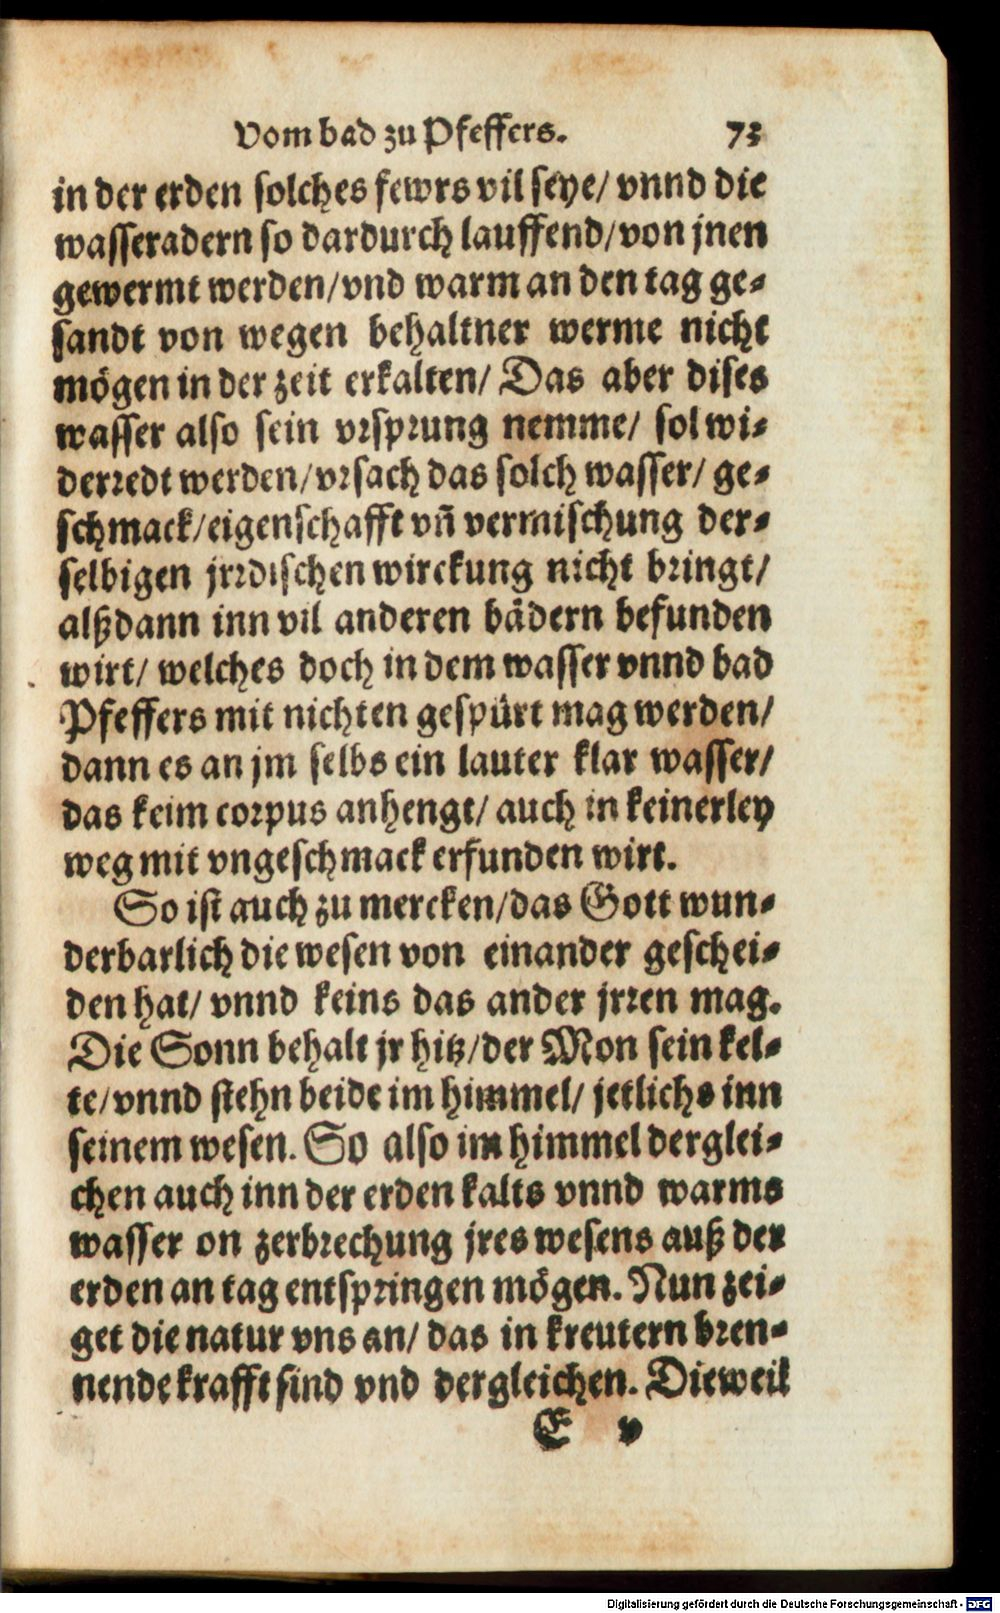 Vom bad zu Pfeffers. 73
in der erden solches fewrs vil seye/ vnnd die
wasseradern so dardurch lauffend/ von jnen
gewermt werden/ vnd warm an den tag ge-
sandt von wegen behaltner werme nicht
mögen in der zeit erkalten/ Das aber dises
wasser also sein vrsprung nemme/ sol wi-
derredt werden/ vrsach das solch wasser/ ge-
schmack/ eigenschafft vñ vermischung der-
selbigen jrrdischen wirckung nicht bringt/
alßdann inn vil anderen bädern befunden
wirt/ welches doch in dem wasser vnnd bad
Pfeffers mit nichten gespürt mag werden/
dann es an jm selbs ein lauter klar wasser/
das keim corpus anhengt/ auch in keinerley
weg mit vngeschmack erfunden wirt.
So ist auch zu mercken/ das Gott wun-
derbarlich die wesen von einander geschei-
den hat/ vnnd keins das ander jrren mag.
Die Sonn behalt jr hitz/ der Mon sein kel-
te/ vnnd stehn beide im himmel/ jetlichs inn
seinem wesen. So also im himmel derglei-
chen auch inn der erden kalts vnnd warms
wasser on zerbrechung jres wesens auß der
erden an tag entspringen mögen. Nun zei-
get die natur vns an/ das in kreutern bren-
nende krafft sind vnd dergleichen. Dieweil
E v
Digitalisierung gefördert durch die Deutsche Forschungsgemeinschaft - DFG